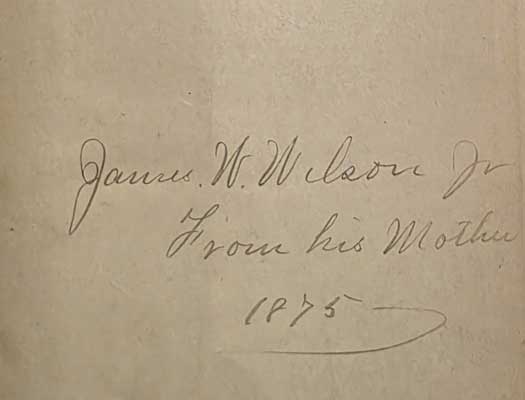 James. W. Wilson Jr
From his Mother
1875